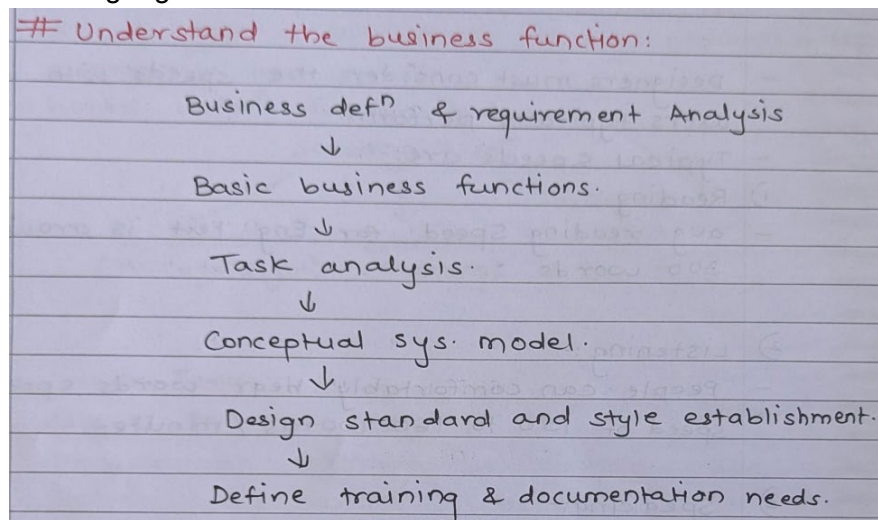 # Understand the business function:
Business defⁿ & requirement Analysis
↓
Basic business functions.
↓
Task analysis.
↓
Conceptual sys. model.
↓
Design standard and style establishment.
↓
Define training & documentation needs.